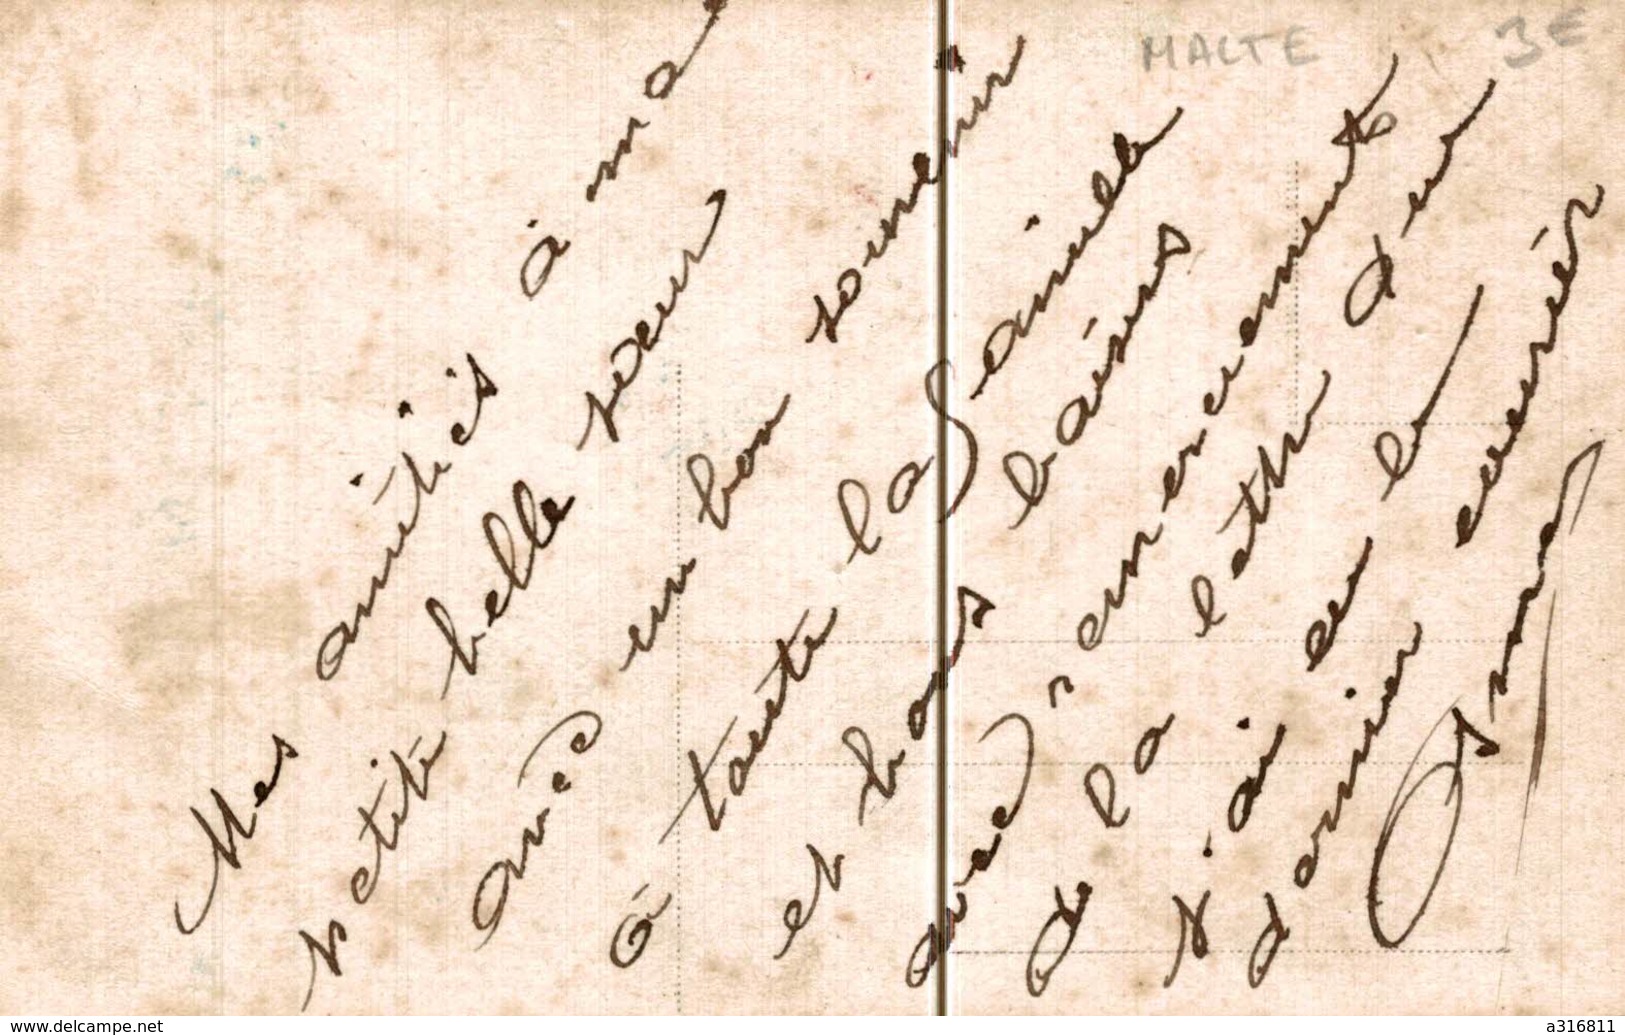 MALTE 3€
Mes amitiés à ma
petite belle soeur
avec un bon souvenir
à toute la famille
et bons baisers
avec remerciements
de la lettre d'eu
j'ai eu le
dernier courrier
www.delcampe.net
a316811